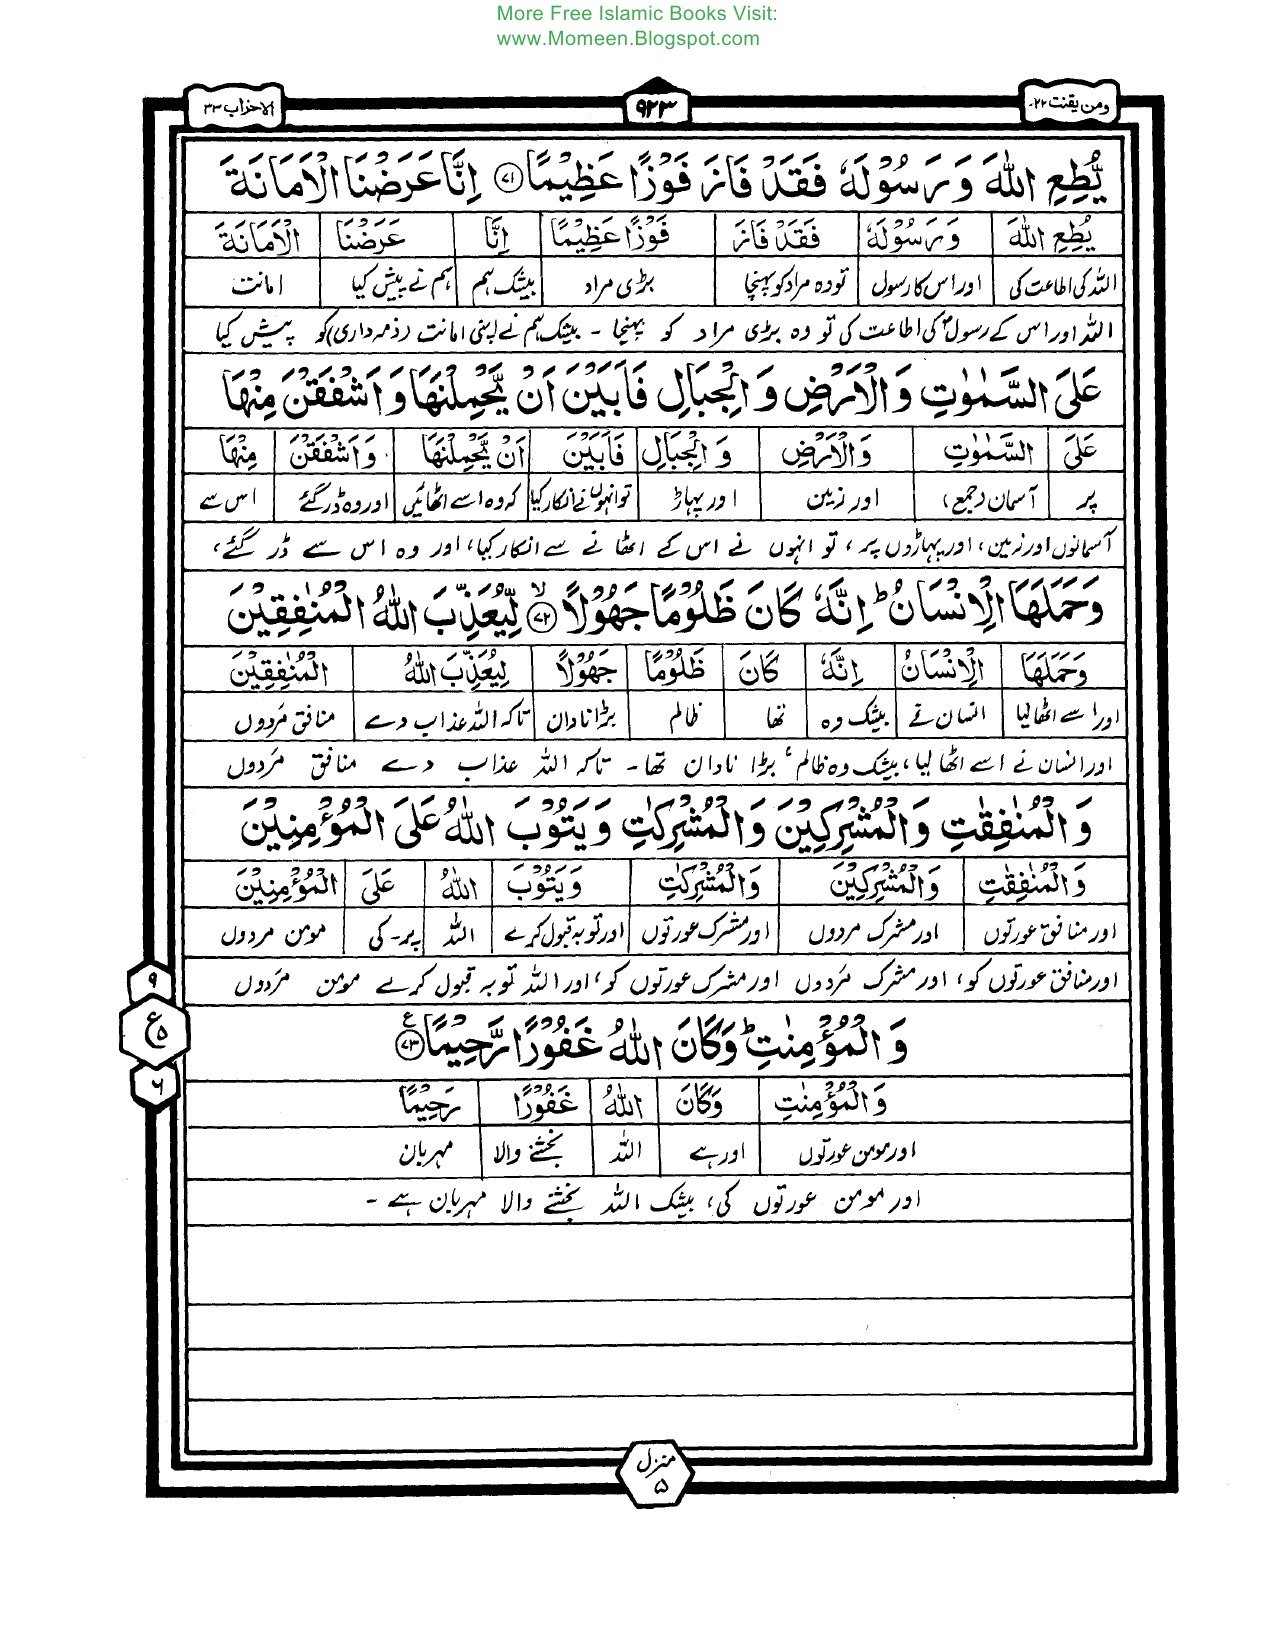 More Free Islamic Books Visit:
www.Momeen.Blogspot.com
ومن یقنت-۲۲
۹۲۳
الاحزاب ۳۳
يُّطِعِ اللّٰهَ وَ رَسُوْلَهٗ فَقَدْ فَازَ فَوْزًا عَظِيْمًا ۷۱ اِنَّا عَرَضْنَا الْاَمَانَةَ
يُطِعِ اللّٰهَ وَ رَسُوْلَهٗ فَقَدْ فَازَ فَوْزًا عَظِيْمًا اِنَّا عَرَضْنَا الْاَمَانَةَ
اللہ کی اطاعت کی اور اس کا رسول تو وہ مراد کو پہنچا بڑی مراد بیشک ہم ہم نے پیش کیا امانت
اللہ اور اس کے رسولؐ کی اطاعت کی تو وہ بڑی مراد کو پہنچا ۔ بیشک ہم نے اپنی امانت (ذمہ داری) کو پیش کیا
عَلَى السَّمٰوٰتِ وَ الْاَرْضِ وَ الْجِبَالِ فَاَبَيْنَ اَنْ يَّحْمِلْنَهَا وَ اَشْفَقْنَ مِنْهَا
عَلَى السَّمٰوٰتِ وَ الْاَرْضِ وَ الْجِبَالِ فَاَبَيْنَ اَنْ يَّحْمِلْنَهَا وَ اَشْفَقْنَ مِنْهَا
پر آسمان (جمع) اور زمین اور پہاڑ تو انہوں نے انکار کیا کہ وہ اسے اٹھائیں اور وہ ڈر گئے اس سے
آسمانوں اور زمین، اور پہاڑوں پر، تو انہوں نے اس کے اٹھانے سے انکار کیا، اور وہ اس سے ڈر گئے،
وَ حَمَلَهَا الْاِنْسَانُ ؕ اِنَّهٗ كَانَ ظَلُوْمًا جَهُوْلًا ۙ۷۲ لِّيُعَذِّبَ اللّٰهُ الْمُنٰفِقِيْنَ
وَ حَمَلَهَا الْاِنْسَانُ اِنَّهٗ كَانَ ظَلُوْمًا جَهُوْلًا لِيُعَذِّبَ اللّٰهُ الْمُنٰفِقِيْنَ
اور اسے اٹھا لیا انسان نے بیشک وہ تھا ظالم بڑا نادان تاکہ اللہ عذاب دے منافق مَردوں
اور انسان نے اسے اٹھا لیا، بیشک وہ ظالم، بڑا نادان تھا ۔ تاکہ اللہ عذاب دے منافق مَردوں
وَ الْمُنٰفِقٰتِ وَ الْمُشْرِكِيْنَ وَ الْمُشْرِكٰتِ وَ يَتُوْبَ اللّٰهُ عَلَى الْمُؤْمِنِيْنَ
وَ الْمُنٰفِقٰتِ وَ الْمُشْرِكِيْنَ وَ الْمُشْرِكٰتِ وَ يَتُوْبَ اللّٰهُ عَلَى الْمُؤْمِنِيْنَ
اور منافق عورتوں اور مشرک مردوں اور مشرک عورتوں اور توبہ قبول کرے اللہ پر۔ کی مومن مردوں
اور منافق عورتوں کو، اور مشرک مَردوں اور مشرک عورتوں کو، اور اللہ توبہ قبول کرے مومن مَردوں
وَ الْمُؤْمِنٰتِ ؕ وَ كَانَ اللّٰهُ غَفُوْرًا رَّحِيْمًا ۷۳ ع
وَ الْمُؤْمِنٰتِ وَ كَانَ اللّٰهُ غَفُوْرًا رَحِيْمًا
اور مومن عورتوں اور ہے اللہ بخشنے والا مہربان
اور مومن عورتوں کی، بیشک اللہ بخشنے والا مہربان ہے ۔
۹
ع ۵
۶
منزل
۵